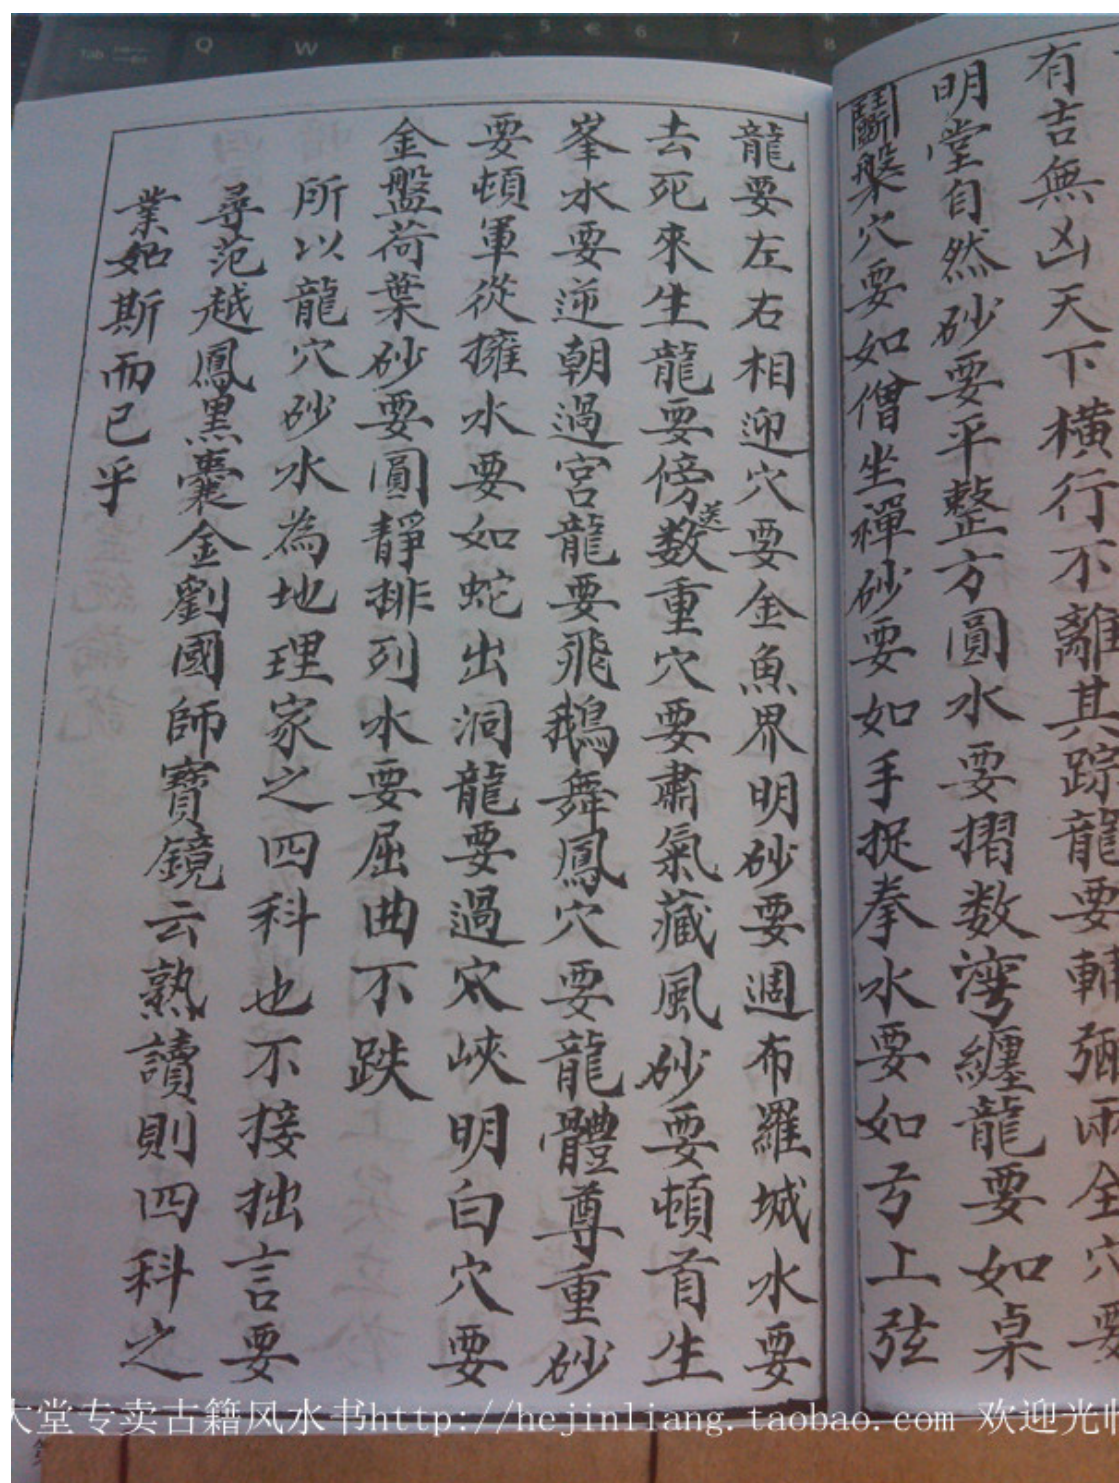 有吉無凶天下橫行不離其踪龍要輔弼兩全穴要
明堂自然砂要平整方圓水要摺数灣纏龍要如桌
鬭槃穴要如僧坐禪砂要如手捉拳水要如弓上弦
龍要左右相迎穴要金魚界明砂要週布羅城水要
去死來生龍要傍送数重穴要肅氣藏風砂要頓首生
峯水要逆朝過宮龍要飛鵝舞鳳穴要龍體尊重砂
要頓軍從擁水要如蛇出洞龍要過峽明白穴要
金盤荷葉砂要圓靜排列水要屈曲不跌
所以龍穴砂水為地理家之四科也不接拙言要
尋范越鳳黑囊金劉國師寶鏡云熟讀則四科之
業如斯而已乎
大堂专卖古籍风水书http://hejinliang.taobao.com 欢迎光临
Tab Q W E
4 5 € 6 7 8